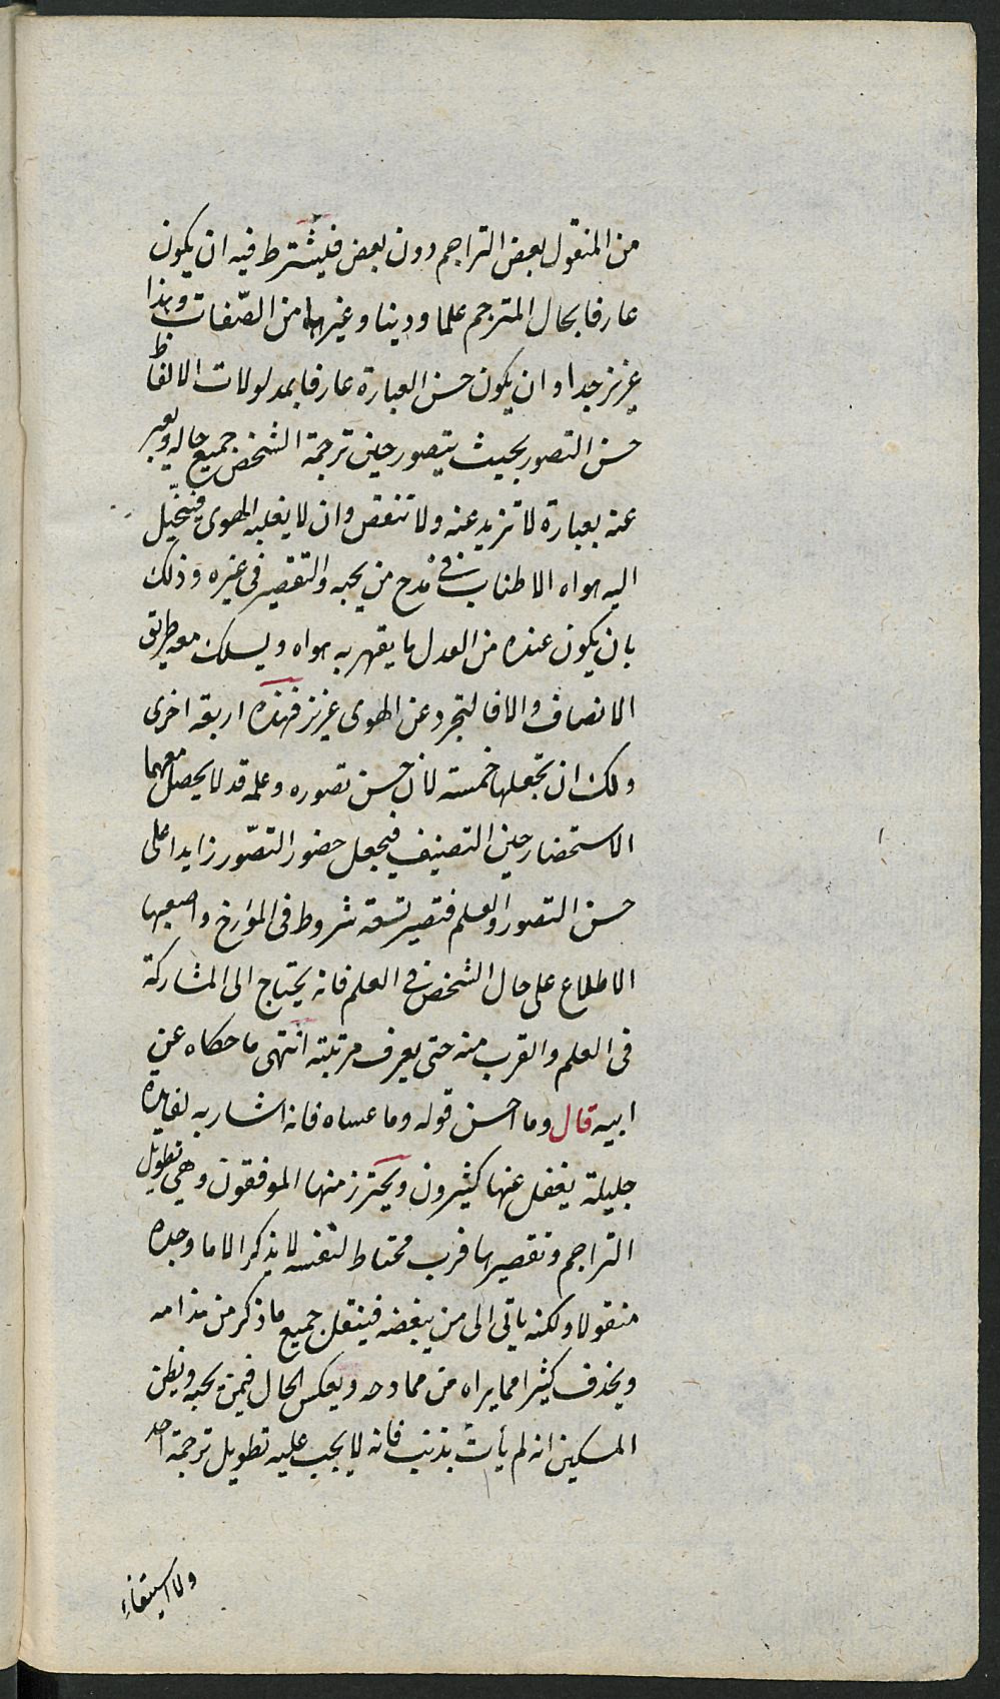 من المنقول بعض التراجم دون بعض فليشترط فيه ان يكون
عارفا بحال المترجم علما ودينا وغيرها من الصّفات وهذا
عزيز جدا وان يكون حسن العبارة عارفا بمدلولات الالفاظ
حسن التصور بحيث يتصور حين ترجمة الشخص جميع حاله ويعبر
عنه بعبارة لا تزيد عنه ولا تنقص وان لا يغلبه الهوى فيخّيل
اليه هواه الاطناب في مدح من يحبه والتقصير فى غيره وذلك
بان يكون عنده من العدل ما يقهر به هواه ويسلك معه طريق
الانصاف والا فالتجرد عن الهوى عزيز فهذه اربعة اخرى
ولك ان تجعلها خمسة لان حسن تصوره وعلمه قد لا يحصل معهما
الاستحضار حين التصنيف فيجعل حضور التصّور زايدا على
حسن التصور والعلم فتصير تسعة شروط فى المؤرخ واصعبها
الاطلاع على حال الشخص في العلم فانه يحتاج الى المشاركة
فى العلم والقرب منه حتى يعرف مرتبته انتهى ما حكاه عن
ابيه قال وما احسن قوله وما عساه فانه اشار به لفايدة
جليلة يغفل عنها كثيرون ويحترز منها الموفقون وهي تطويل
التراجم وتقصيرها فرب محتاط لنفسه لا يذكر الا ما وجده
منقولا ولكنه ياتى الى من يبغضه فينقل جميع ما ذكر من مذامه
ويحذف كثيرا مما يراه من ممادحه ويعكس الحال فيمن يحبه ويظن
المسكين انه لم يأت بذنب فانه لا يجب عليه تطويل ترجمة احد
ولا استيفاء